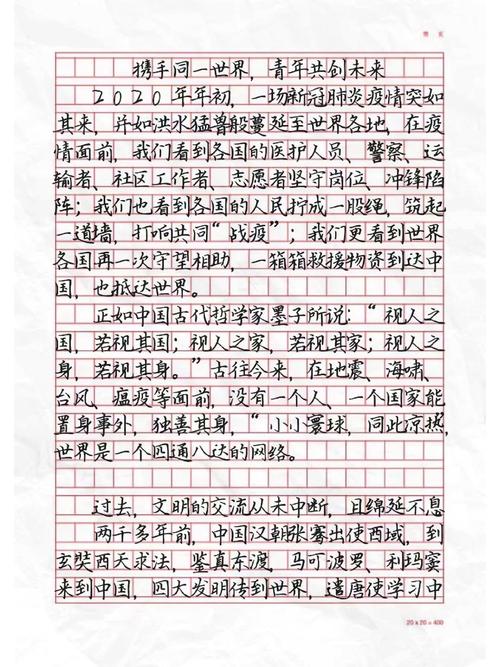 携手同一世界，青年共创未来
2020年年初，一场新冠肺炎疫情突如
其来，并如洪水猛兽般蔓延至世界各地，在疫
情面前，我们看到各国的医护人员、警察、运
输者、社区工作者、志愿者坚守岗位、冲锋陷
阵；我们也看到各国的人民拧成一股绳，筑起
一道墙，打响共同“战疫”；我们更看到世界
各国再一次守望相助，一箱箱救援物资到达中
国，也抵达世界。
正如中国古代哲学家墨子所说：“视人之
国，若视其国；视人之家，若视其家；视人之
身，若视其身。”古往今来，在地震、海啸、
台风、瘟疫等面前，没有一个人、一个国家能
置身事外，独善其身，“小小寰球，同此凉热”，
世界是一个四通八达的网络。
过去，文明的交流从未中断，且绵延不息
两千多年前，中国汉朝张骞出使西域，到
玄奘西天求法，鉴真东渡，马可波罗、利玛窦
来到中国，四大发明传到世界，遣唐使学习中
20×20=400